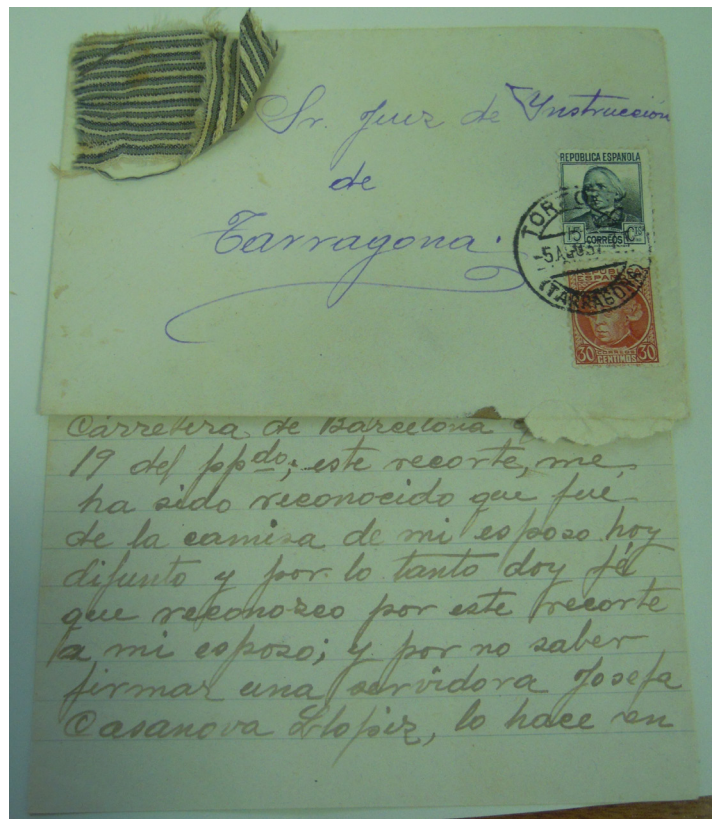 Sr. Juez de Instrucción
de
Tarragona.
REPÚBLICA ESPAÑOLA
15 CORREOS CTS
TOR
-5 AGO 37
(TARRAGONA)
REPUBLICA
ESPAÑOLA
30 CORREOS 30
CENTIMOS
Carretera de Barcelona
19 del ppdo; este recorte, me
ha sido reconocido que fué
de la camisa de mi esposo hoy
difunto y por lo tanto doy fé
que reconozco por este recorte
a mi esposo; y por no saber
firmar una servidora Josefa
Casanova Llopiz, lo hace en